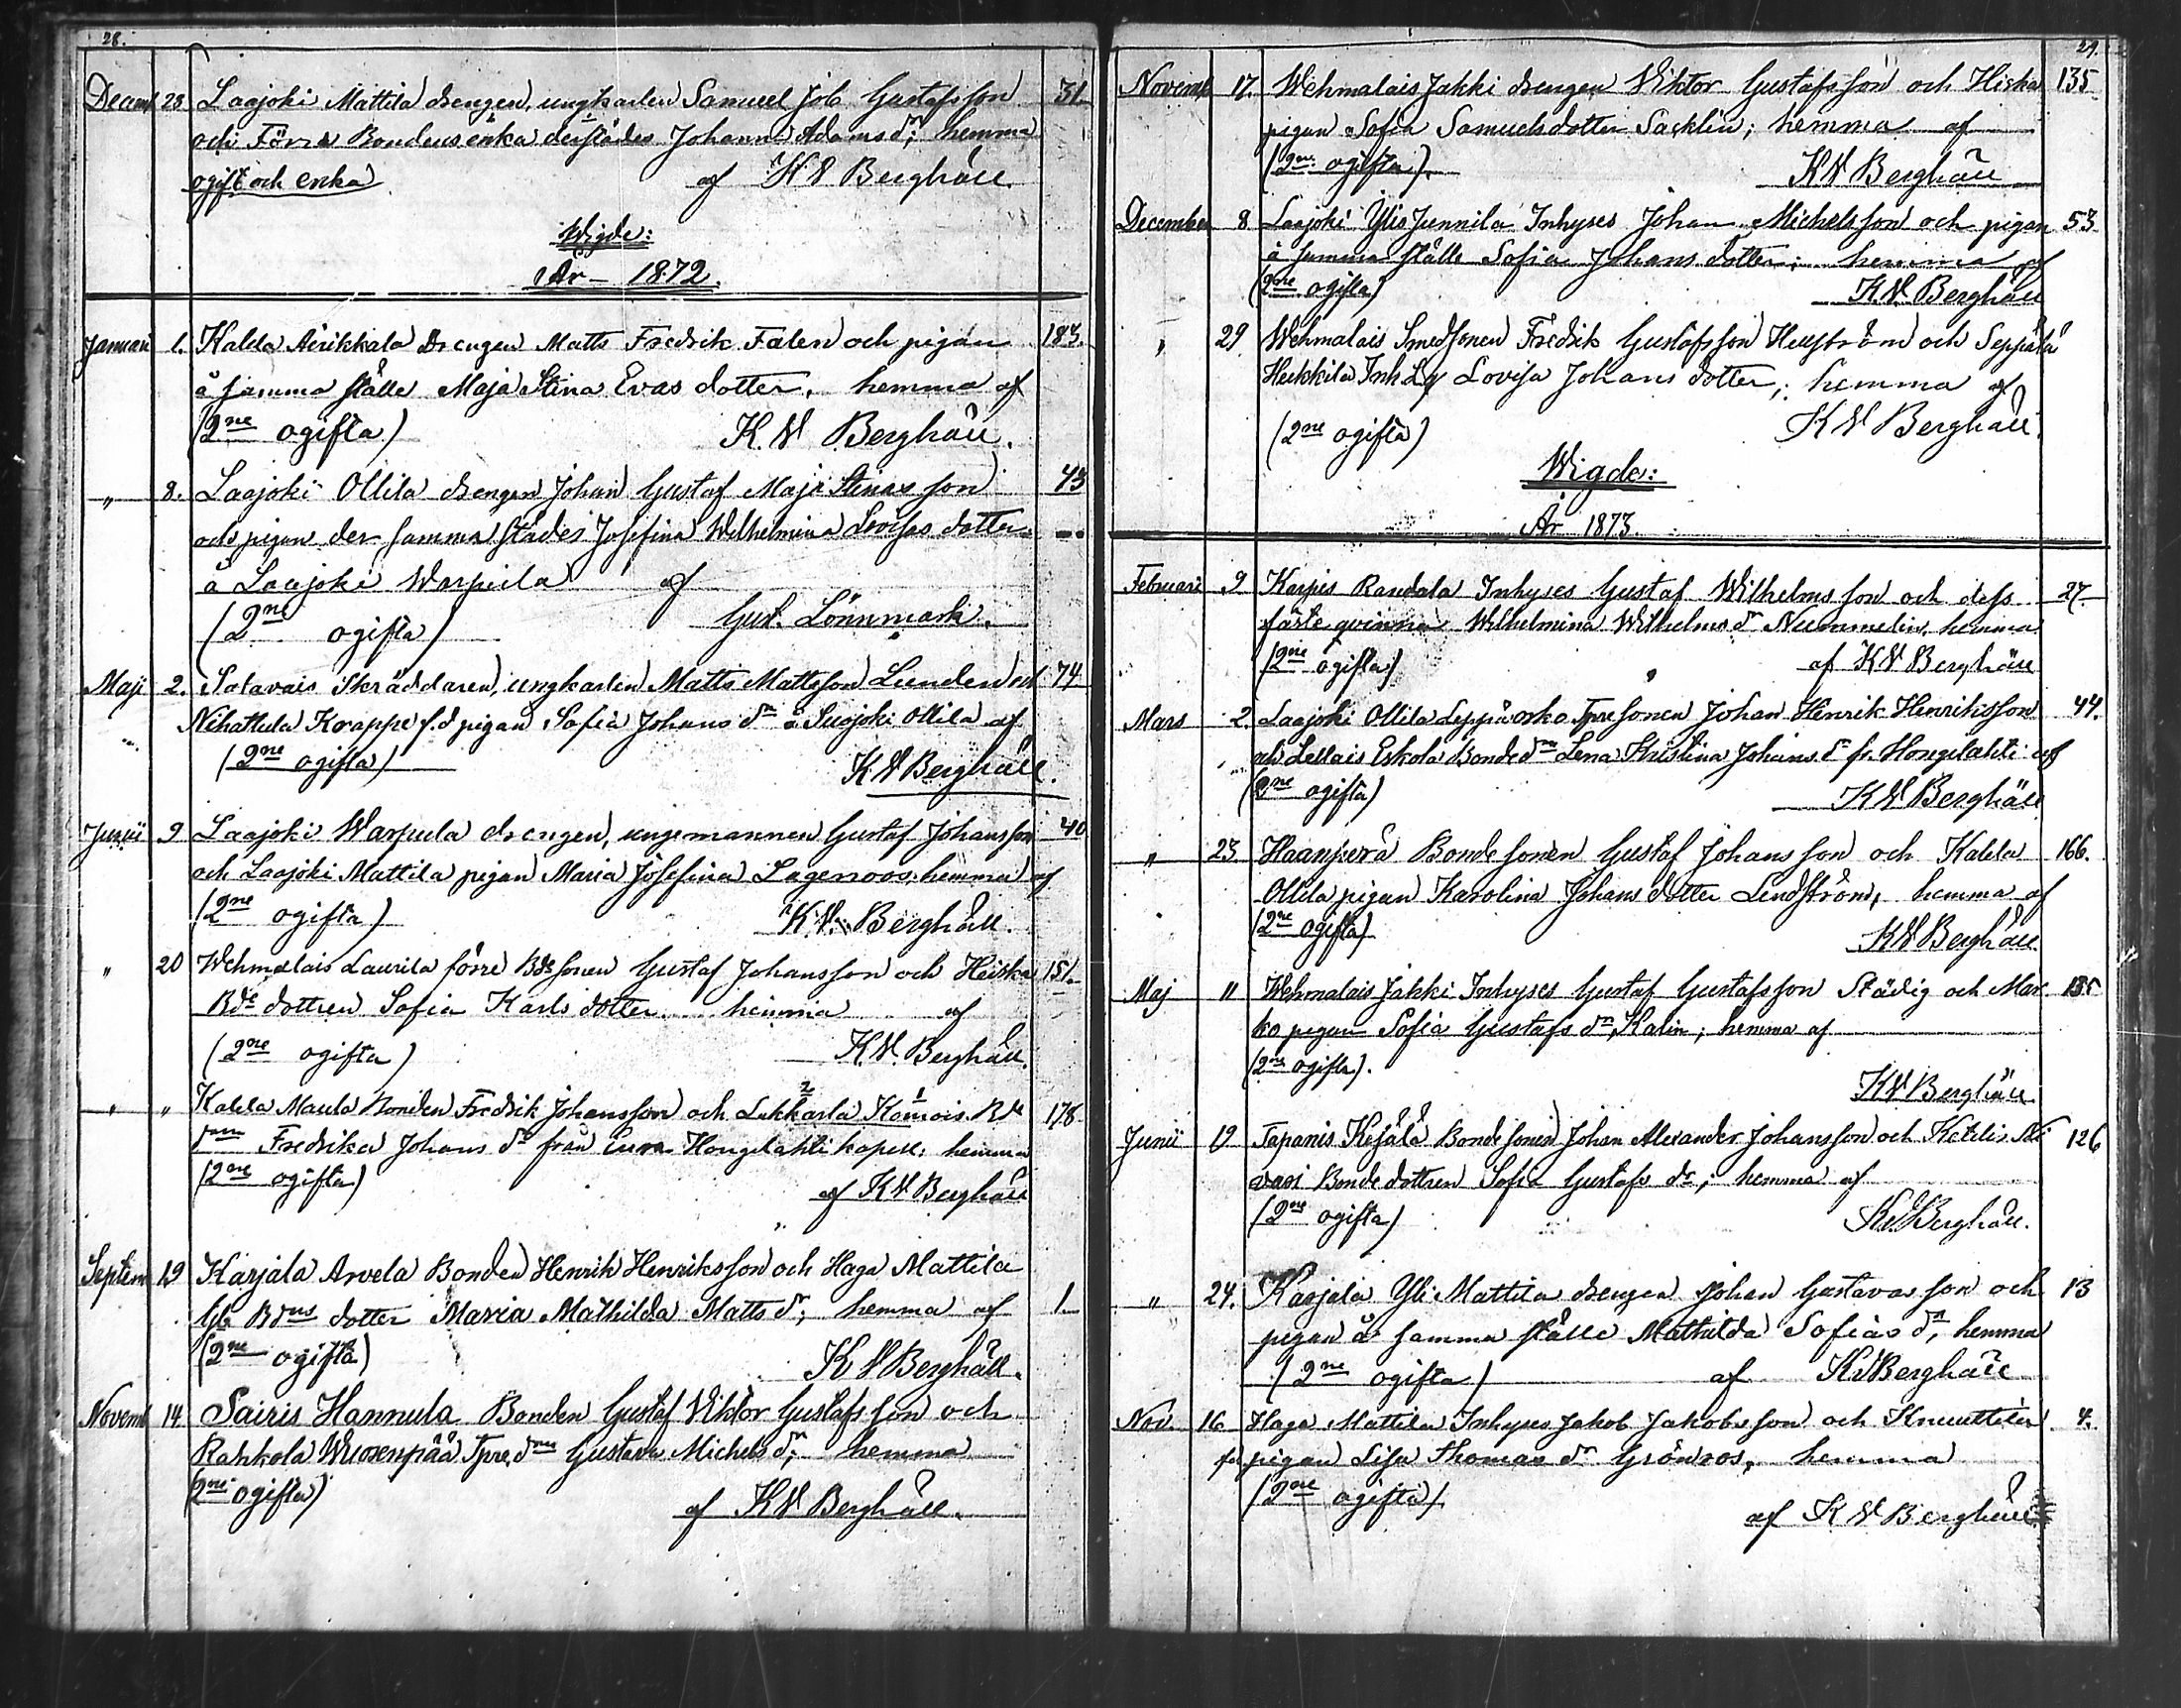 28.
Decemb 28. Laajoki Mattila drengen, ungkarlen Samuel Job Gustafsson 31.
och Förra Bondens enka derstädes Johanna Adamsdr; hemma
ogift och enka af K V Berghäll
Wigde:
År 1872.
Januari 1. Kalela Äirikkala Drengen Matts Fredrik Falen och pigan 183.
å samma ställe Maja Stina Evas dotter, hemma af
(2ne ogifta) K. V. Berghäll.
„ 8. Laajoki Ollila drengen Johan Gustaf Maja Stinas son 43
och pigan der samma städes Josefina Wilhelmina Lovisas dotter
å Laajoki Warpula af
(2ne ogifta) Gust. Lönnmark.
Maji 2. Satavais Skräddaren, ungkarlen Matts Mattsson Lunden och 74
Nihattula Knappe f.d pigan Sofia Johans dr å Suojoki Ollila af
(2ne ogifta) K V Berghäll.
Junii 9 Laajoki Warpula drengen, unge mannen Gustaf Johansson 40
och Laajoki Mattila pigan Maria Josefina Lagerroos, hemma af
(2ne ogifta) K. V. Berghäll.
„ 20 Wehmalais Laurila förre Bde sonen Gustaf Johansson och Heiska 151.
Bde dottren Sofia Karls dotter hemma af
(2ne ogifta) K. V. Berghäll.
„ „ Kalela Maula Bonden Fredrik Johansson och Lukkarla Komois Bde 178
Fredrika Johans dr från Eura Honglahti kapell; hemma
(2ne ogifta) af K V Berghäll
Septem 19 Karjala Arvela Bonden Henrik Henriksson och Haga Mattila
Bdns dotter Maria Mathilda Matts dr; hemma af 1
(2ne ogifta) K V Berghäll.
Novemb 14. Sairis Hannula Bonden Gustaf Viktor Gustafsson och
Rahkola Wuorenpää Tpre. Gustava Michels dr; hemma
(2ne ogifta)
af K V Berghäll.
29.
Novemb 17. Wehmalais Jakki drengen Viktor Gustafsson och Hiska 135
pigan Sofia Samuelsdotter Sacklin; hemma af
(2ne ogifta) K V Berghäll
December 8 Laajoki Ylis Junnila Inhyses Johan Michelsson och pigan 53
å samma ställe Sofia Johans dotter; hemma af
(2ne ogifta) K. V. Berghäll
„ 29 Wehmalais Smedsonen Fredrik Gustafsson Hellström och Seppälä
Heikkilä Inh. Lovisa Johans dotter; hemma af
(2ne ogifta) K V Berghäll.
Wigde:
År 1873.
Februari 9 Karpis Randala Inhyses Gustaf Wilhelms son och dess 27.
fäste qvinna Wilhelmina Wilhelms dr Nummelin, hemma
(2ne ogifta) af K V Berghäll
Mars 2. Laajoki Ollila Leppäorko Tpre sonen Johan Henrik Henriksson 44.
och Lellais Eskola Bonde Lena Kristina Johans dr fr. Honglahti af
(2ne ogifta) K V Berghäll
„ 23 Haanperä Bonde sonen Gustaf Johansson och Kalela 166.
Ollila pigan Karolina Johans dotter Lindström, hemma af
(2ne ogifta) K V Berghäll.
Maj „ Wehmalais Jakki Inhyses Gustaf Gustafsson Städig och Mar 135
ko pigan Sofia Gustafs dr Kalin; hemma af
(2ne ogifta).
K V Berghäll
Junii 19 Tapanis Kesälä Bonde sonen Johan Alexander Johansson och Ketelis Ali 126
vasi Bonde dottren Sofia Gustafs dr; hemma af
(2ne ogifta) K V Berghäll.
„ 24. Karjala Yli Mattila drengen Johan Gustavas son och 13
pigan å samma ställe Mathilda Sofias dr, hemma
(2ne ogifta) af K V Berghäll
Nov. 16 Haga Mattila Inhyses Jakob Jakobsson och Knuuttila 4.
pigan Lisa Thomas dr Grönroos, hemma
(2ne ogifta)
af K V Berghäll